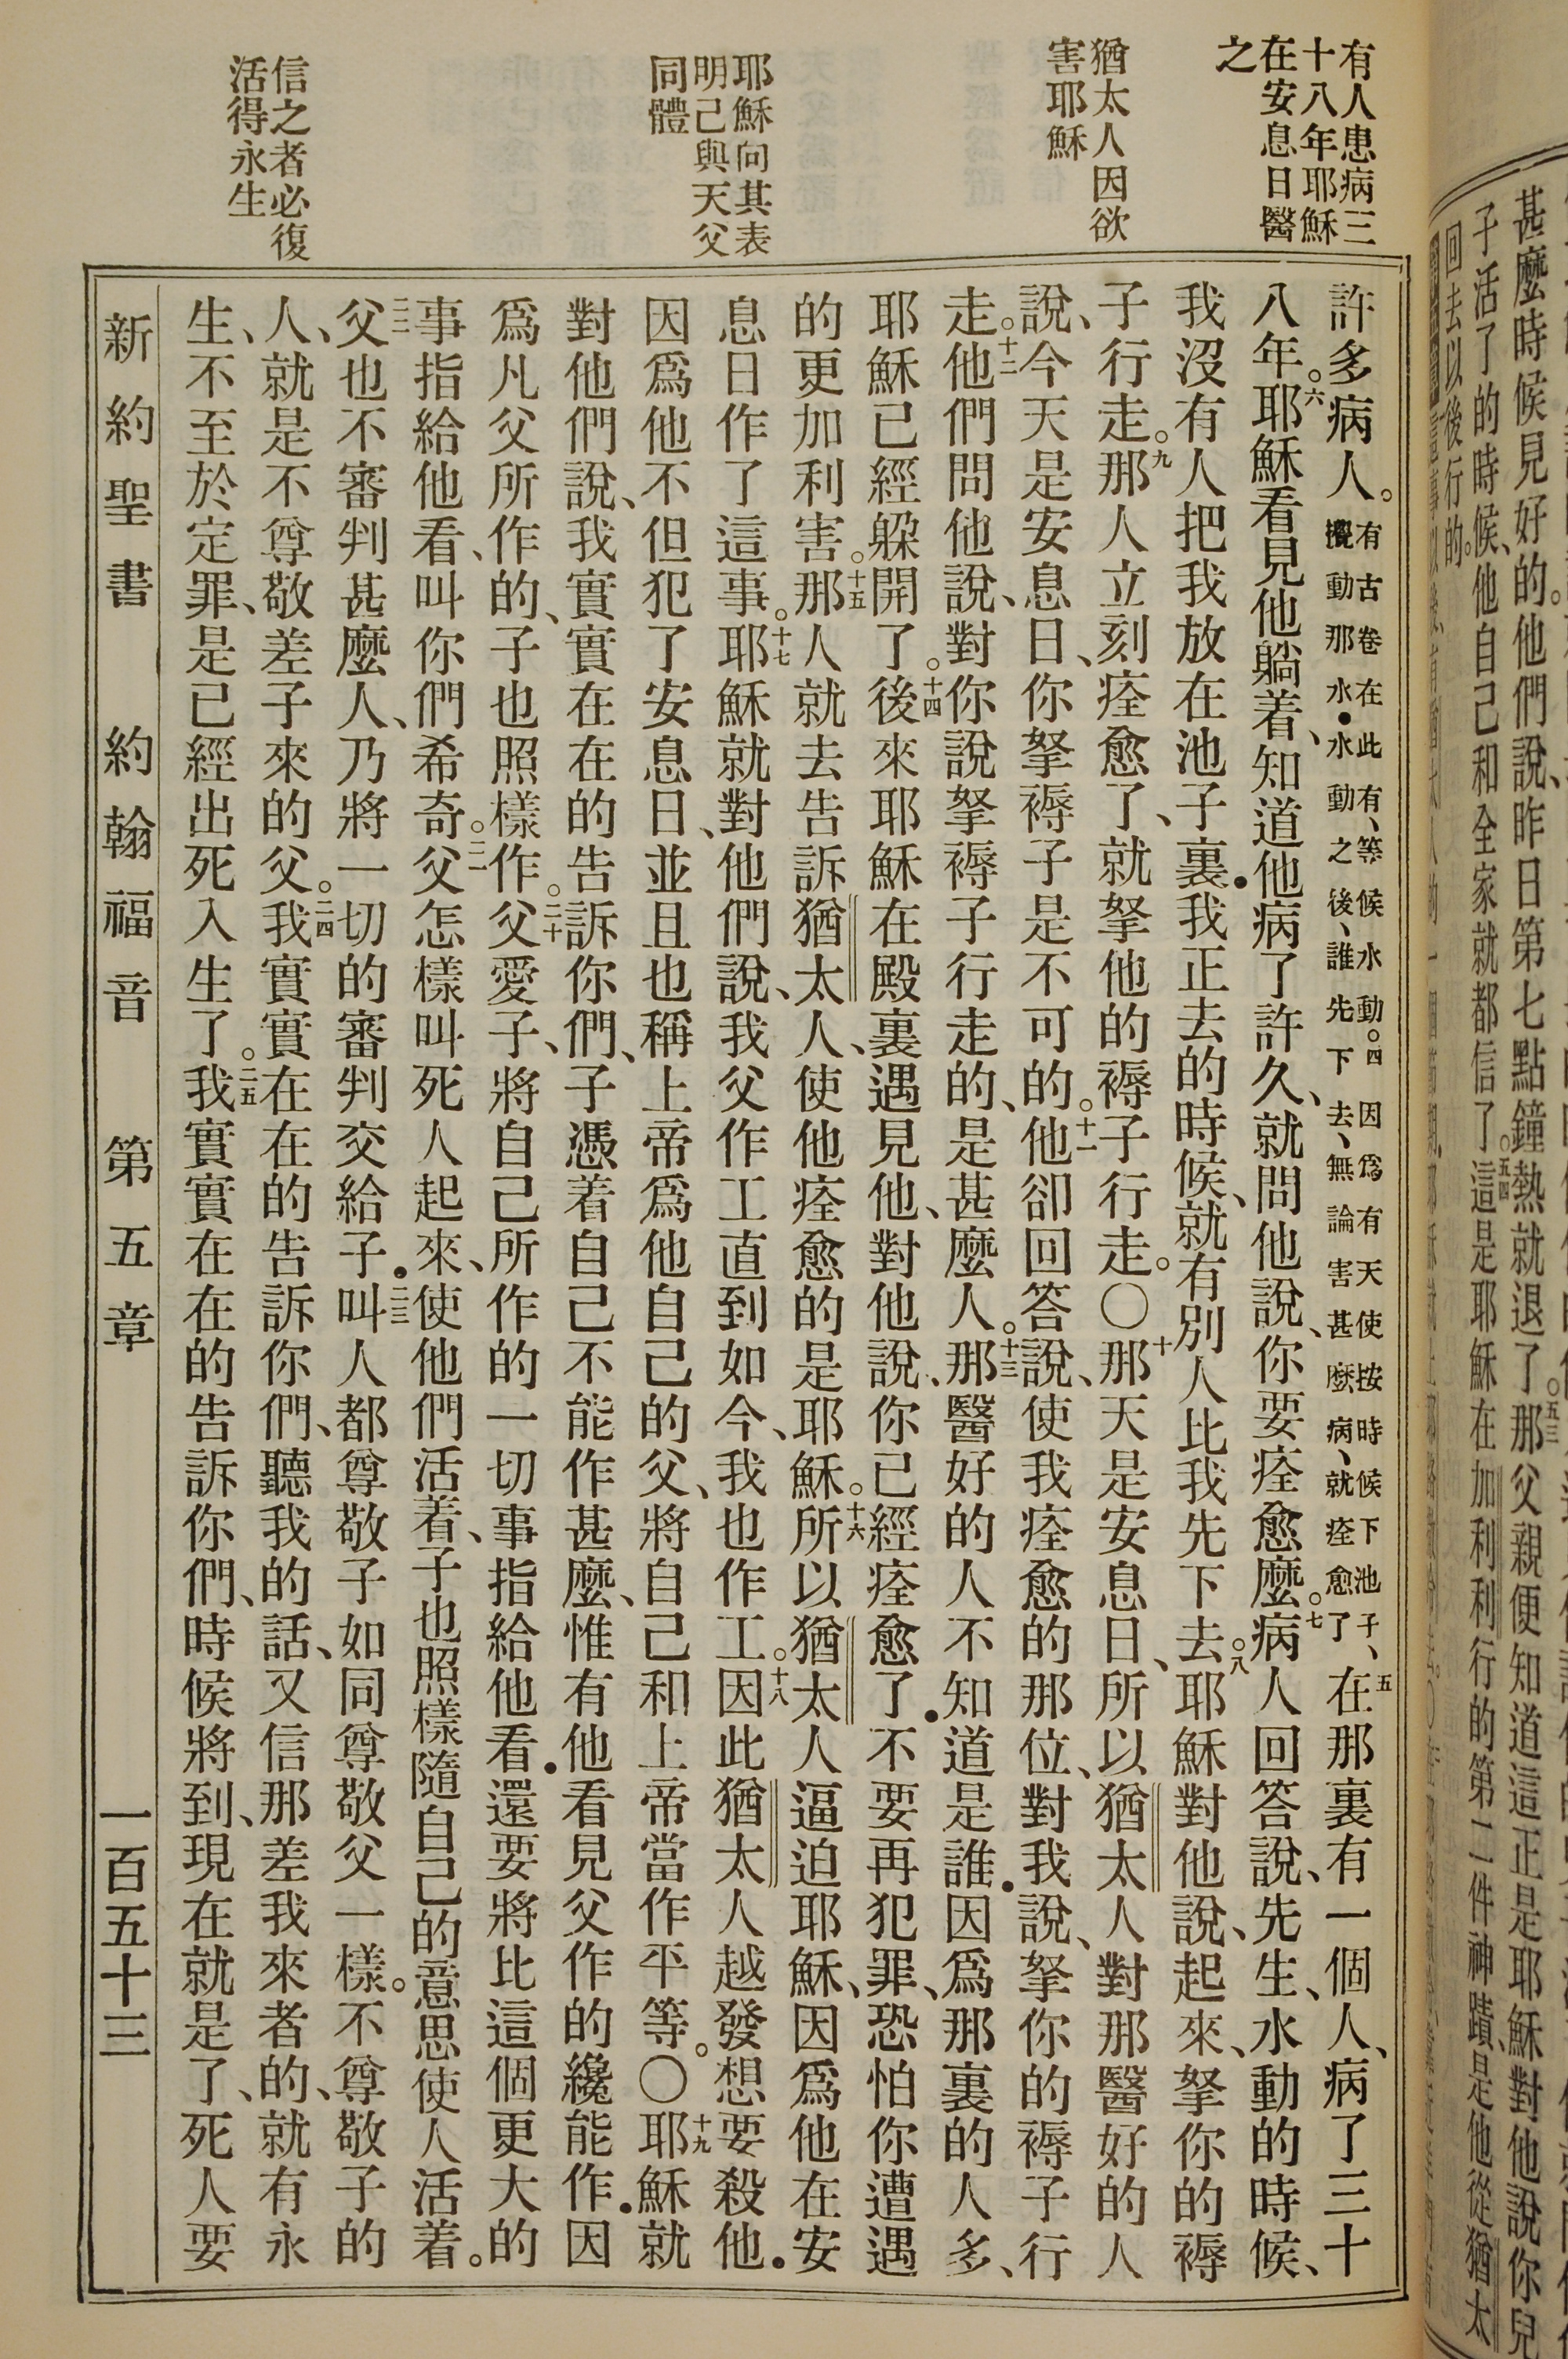 有人患病三
十八年耶穌
在安息日醫
之
猶太人因欲
害耶穌
耶穌向其表
明己與天父
同體
信之者必復
活得永生
許多病人。有古卷在此有、等候水動。四因爲有天使按時候下池子、
攪動那水•水動之後、誰先下去、無論害甚麼病、就痊愈了
五在那裏有一個人、病了三十
八年。六耶穌看見他躺着、知道他病了許久、就問他說、你要痊愈麼。七病人回答說、先生、水動的時候、
我沒有人把我放在池子裏•我正去的時候、就有別人比我先下去。八耶穌對他說、起來、拏你的褥
子行走。九那人立刻痊愈了、就拏他的褥子行走。〇十那天是安息日、所以猶太人對那醫好的人
說、今天是安息日、你拏褥子是不可的。十一他卻回答說、使我痊愈的那位、對我說、拏你的褥子行
走。十二他們問他說、對你說拏褥子行走的、是甚麼人。十三那醫好的人不知道是誰•因爲那裏的人多、
耶穌已經躲開了。十四後來耶穌在殿裏遇見他、對他說、你已經痊愈了•不要再犯罪、恐怕你遭遇
的更加利害。十五那人就去告訴猶太人、使他痊愈的是耶穌。十六所以猶太人逼迫耶穌、因爲他在安
息日作了這事。十七耶穌就對他們說、我父作工直到如今、我也作工。十八因此猶太人越發想要殺他•
因爲他不但犯了安息日、並且也稱上帝爲他自己的父、將自己和上帝當作平等。〇十九耶穌就
對他們說、我實實在在的告訴你們、子憑着自己不能作甚麼、惟有他看見父作的纔能作•因
爲凡父所作的、子也照樣作。二十父愛子、將自己所作的一切事指給他看•還要將比這個更大的
事指給他看、叫你們希奇。二一父怎樣叫死人起來、使他們活着、子也照樣隨自己的意思使人活着。
二二父也不審判甚麼人、乃將一切的審判交給子•二三叫人都尊敬子如同尊敬父一樣。不尊敬子的
人、就是不尊敬差子來的父。二四我實實在在的告訴你們、聽我的話、又信那差我來者的、就有永
生、不至於定罪、是已經出死入生了。二五我實實在在的告訴你們、時候將到、現在就是了、死人要
新約聖書　約翰福音　第五章　一百五十三
甚麼時候見好的。他們說、昨日第七點鐘熱就退了。五三那父親便知道這正是耶穌對他說你兒
子活了的時候、他自己和全家就都信了。五四這是耶穌在加利利行的第二件神蹟、是他從猶太
回去以後行的。